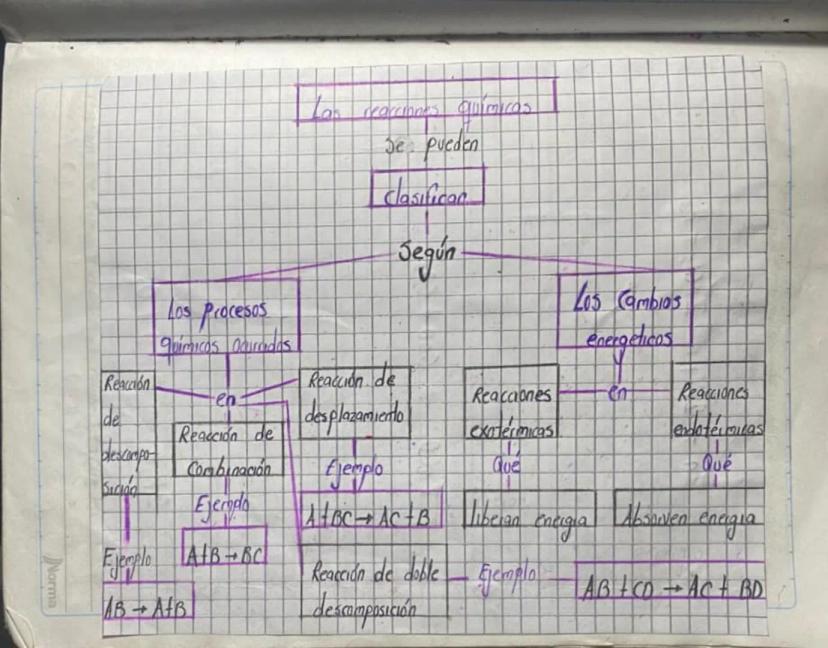 Las reacciones químicas
se pueden
clasificar
Según
Los procesos
químicos ocurridos
Los cambios
energéticos
y
Reacción
de
descompo-
sición
en
Reacción de
desplazamiento
Reacción de
Combinación
Reacciones
exotérmicas
en
Reacciones
endotérmicas
Ejemplo
Ejemplo
Qué
Qué
A+B → BC
A+BC → AC+B
Liberan energía
Absorven energía
Ejemplo
AB → A+B
Reacción de doble
descomposición
Ejemplo
AB + CD → AC + BD
Norma